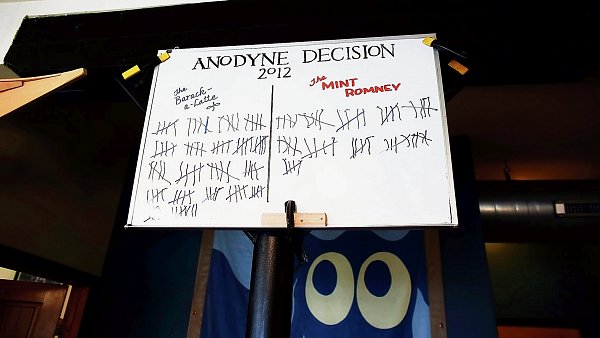 ANODYNE DECISION
2012
The
Barack-
a-Latte
The
MINT
ROMNEY